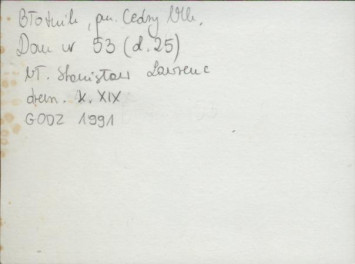 Błotnik, gm. Cedry Wlk.
Dom nr 53 (d. 25)
wł. Stanisław Lawrenc
drew. k. XIX
GODZ 1991